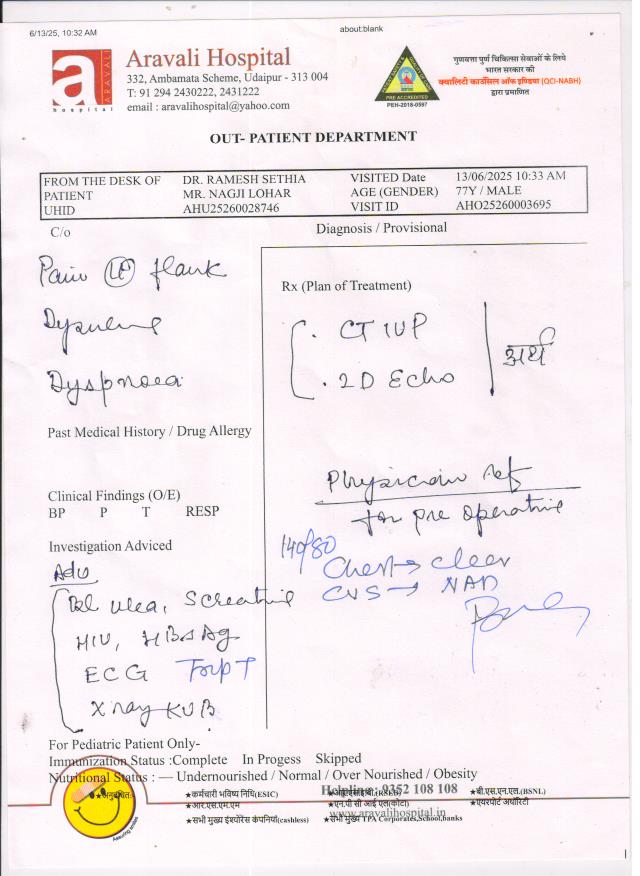 6/13/25, 10:32 AM
about:blank
a
ARAVALI
hospital
Aravali Hospital
332, Ambamata Scheme, Udaipur - 313 004
T: 91 294 2430222, 2431222
email : aravalihospital@yahoo.com
PRE ACCREDITED
PEH-2018-0597
गुणवत्ता पूर्ण चिकित्सा सेवाओं के लिये
भारत सरकार की
क्वालिटी काउंसिल ऑफ इण्डिया (QCI-NABH)
द्वारा प्रमाणित
OUT- PATIENT DEPARTMENT
FROM THE DESK OF DR. RAMESH SETHIA VISITED Date 13/06/2025 10:33 AM
PATIENT MR. NAGJI LOHAR AGE (GENDER) 77Y / MALE
UHID AHU25260028746 VISIT ID AHO25260003695
C/o
Pain flank
Dyspnoea
Past Medical History / Drug Allergy
Clinical Findings (O/E)
BP P T RESP
Investigation Adviced
Adv
urea, S creatine
HIV, HBsAg
ECG
X ray KUB
Diagnosis / Provisional
Rx (Plan of Treatment)
. CT IVP
. 2D Echo
अर्थ
Physician ref
for pre operative
140/80
Chest → clear
CVS → NAD
For Pediatric Patient Only-
Immunization Status :Complete In Progess Skipped
Nutritional Status : — Undernourished / Normal / Over Nourished / Obesity
Helpline: 9352 108 108
www.aravalihospital.in
★अनुबंधित:
★कर्मचारी भविष्य निधि(ESIC)
★बी.एस.एन.एल.(BSNL)
★आर.एस.एम.एम
★एन.पी सी आई एल(कोटा)
★एयरपोर्ट अथॉरिटी
★सभी मुख्य इंश्योरेंस कंपनियां(cashless)
★सभी मुख्य TPA Corporates,School,banks
Assuring smiles